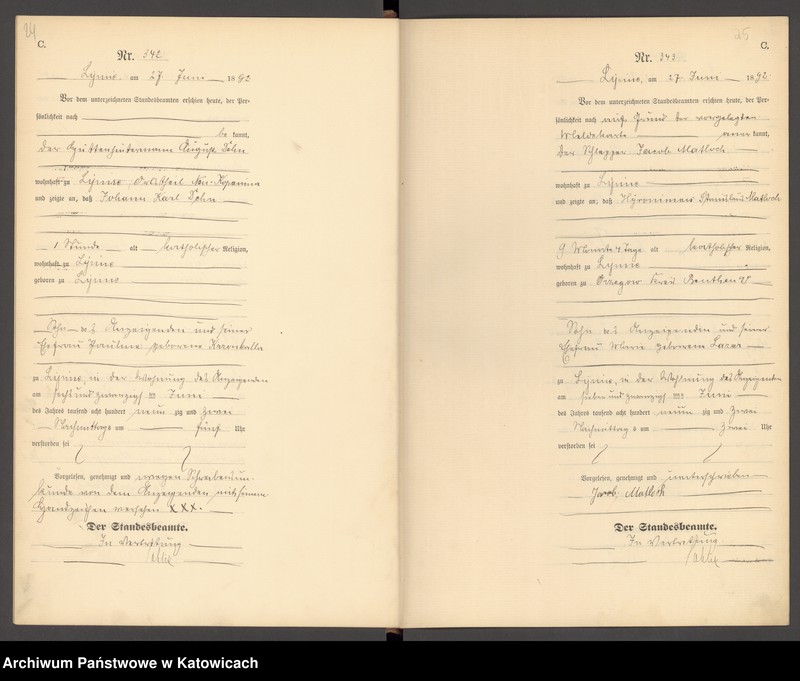 24
C.
Nr. 342
Lipine, am 27 Juni 1892
Vor dem unterzeichneten Standesbeamten erschien heute, der Per-
sönlichkeit nach
be kannt,
der Hüttenzimmermann August
wohnhaft zu Lipine Ortstheil
und zeigte an, daß Johann Karl
1 Stunde alt katholischer Religion,
wohnhaft zu Lipine
geboren zu Lipine
Sohn des Anzeigenden und seiner
Ehefrau Pauline geborene
zu Lipine, in der Wohnung des Anzeigenden
am sechs und zwanzigsten Juni
des Jahres tausend acht hundert neun zig und zwei
Nachmittags um fünf Uhr
verstorben sei
Vorgelesen, genehmigt und wegen Schreibensun-
kunde von dem Anzeigenden mit seinem
Handzeichen versehen XXX.
Der Standesbeamte.
In Vertretung
25
C.
Nr. 343
Lipine, am 27 Juni 1892
Vor dem unterzeichneten Standesbeamten erschien heute, der Per-
sönlichkeit nach auf Grund der vorgelegten
Meldekarte kannt,
der Schlepper Jacob Matloch
wohnhaft zu Lipine
und zeigte an, daß Stanislaus Matloch
9 Monate 4 Tage alt katholischer Religion,
wohnhaft zu Lipine
geboren zu Orzegow Kreis Beuthen
Sohn des Anzeigenden und seiner
Ehefrau Marie geborenen Lazar
zu Lipine, in der Wohnung des Anzeigenden
am sieben und zwanzigsten Juni
des Jahres tausend acht hundert neun zig und zwei
Nachmittags um zwei Uhr
verstorben sei
Vorgelesen, genehmigt und unterschrieben
Jacob Matloch
Der Standesbeamte.
In Vertretung
Archiwum Państwowe w Katowicach